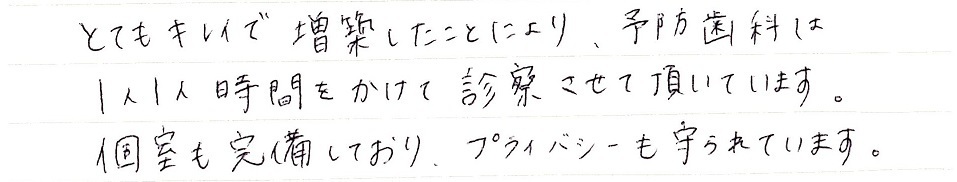 とてもキレイで増築したことにより、予防歯科は
1人1人時間をかけて診察させて頂いています。
個室も完備しており、プライバシーも守られています。